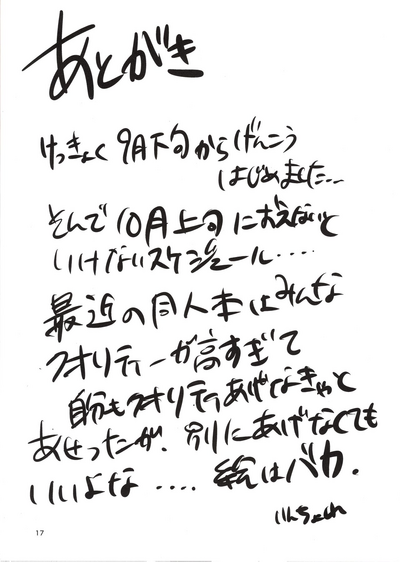 あとがき
けっきょく9月下旬からげんこう
はじめました…
そんで10月上旬におえないと
いけないスケジュール‥‥
最近の同人本はみんな
クオリティーが高すぎて
自分もクオリティあげなきゃと
あせったが、別にあげなくても
いいよな‥‥絵はバカ.
いんちょめ
17